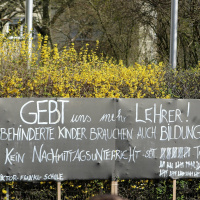 GEBT uns mehr LEHRER!
BEHINDERTE KINDER BRAUCHEN AUCH BILDUNG
KEIN NACHMITTAGSUNTERRICHT seit
SCHULE